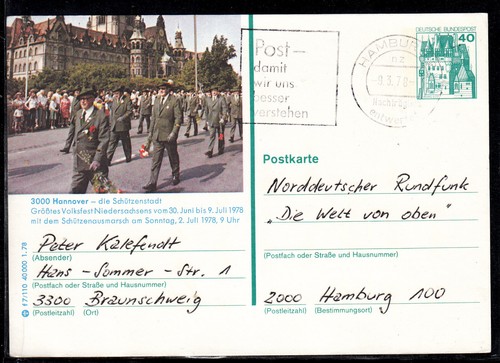 Post-
damit
wir uns
besser
verstehen
HAMBURG
DEUTSCHE BUNDESPOST
40
Postkarte
3000 Hannover – die Schützenstadt
Größtes Volksfest Niedersachsens vom 30. Juni bis 9. Juli 1978
mit dem Schützenausmarsch am Sonntag, 2. Juli 1978, 9 Uhr
Peter Kalefendt
(Absender)
Hans-Sommer-Str. 1
(Postfach oder Straße und Hausnummer)
3300 Braunschweig
(Postleitzahl) (Ort)
Norddeutscher Rundfunk
„Die Welt von oben"
(Postfach oder Straße und Hausnummer)
2000 Hamburg 100
(Postleitzahl) (Bestimmungsort)